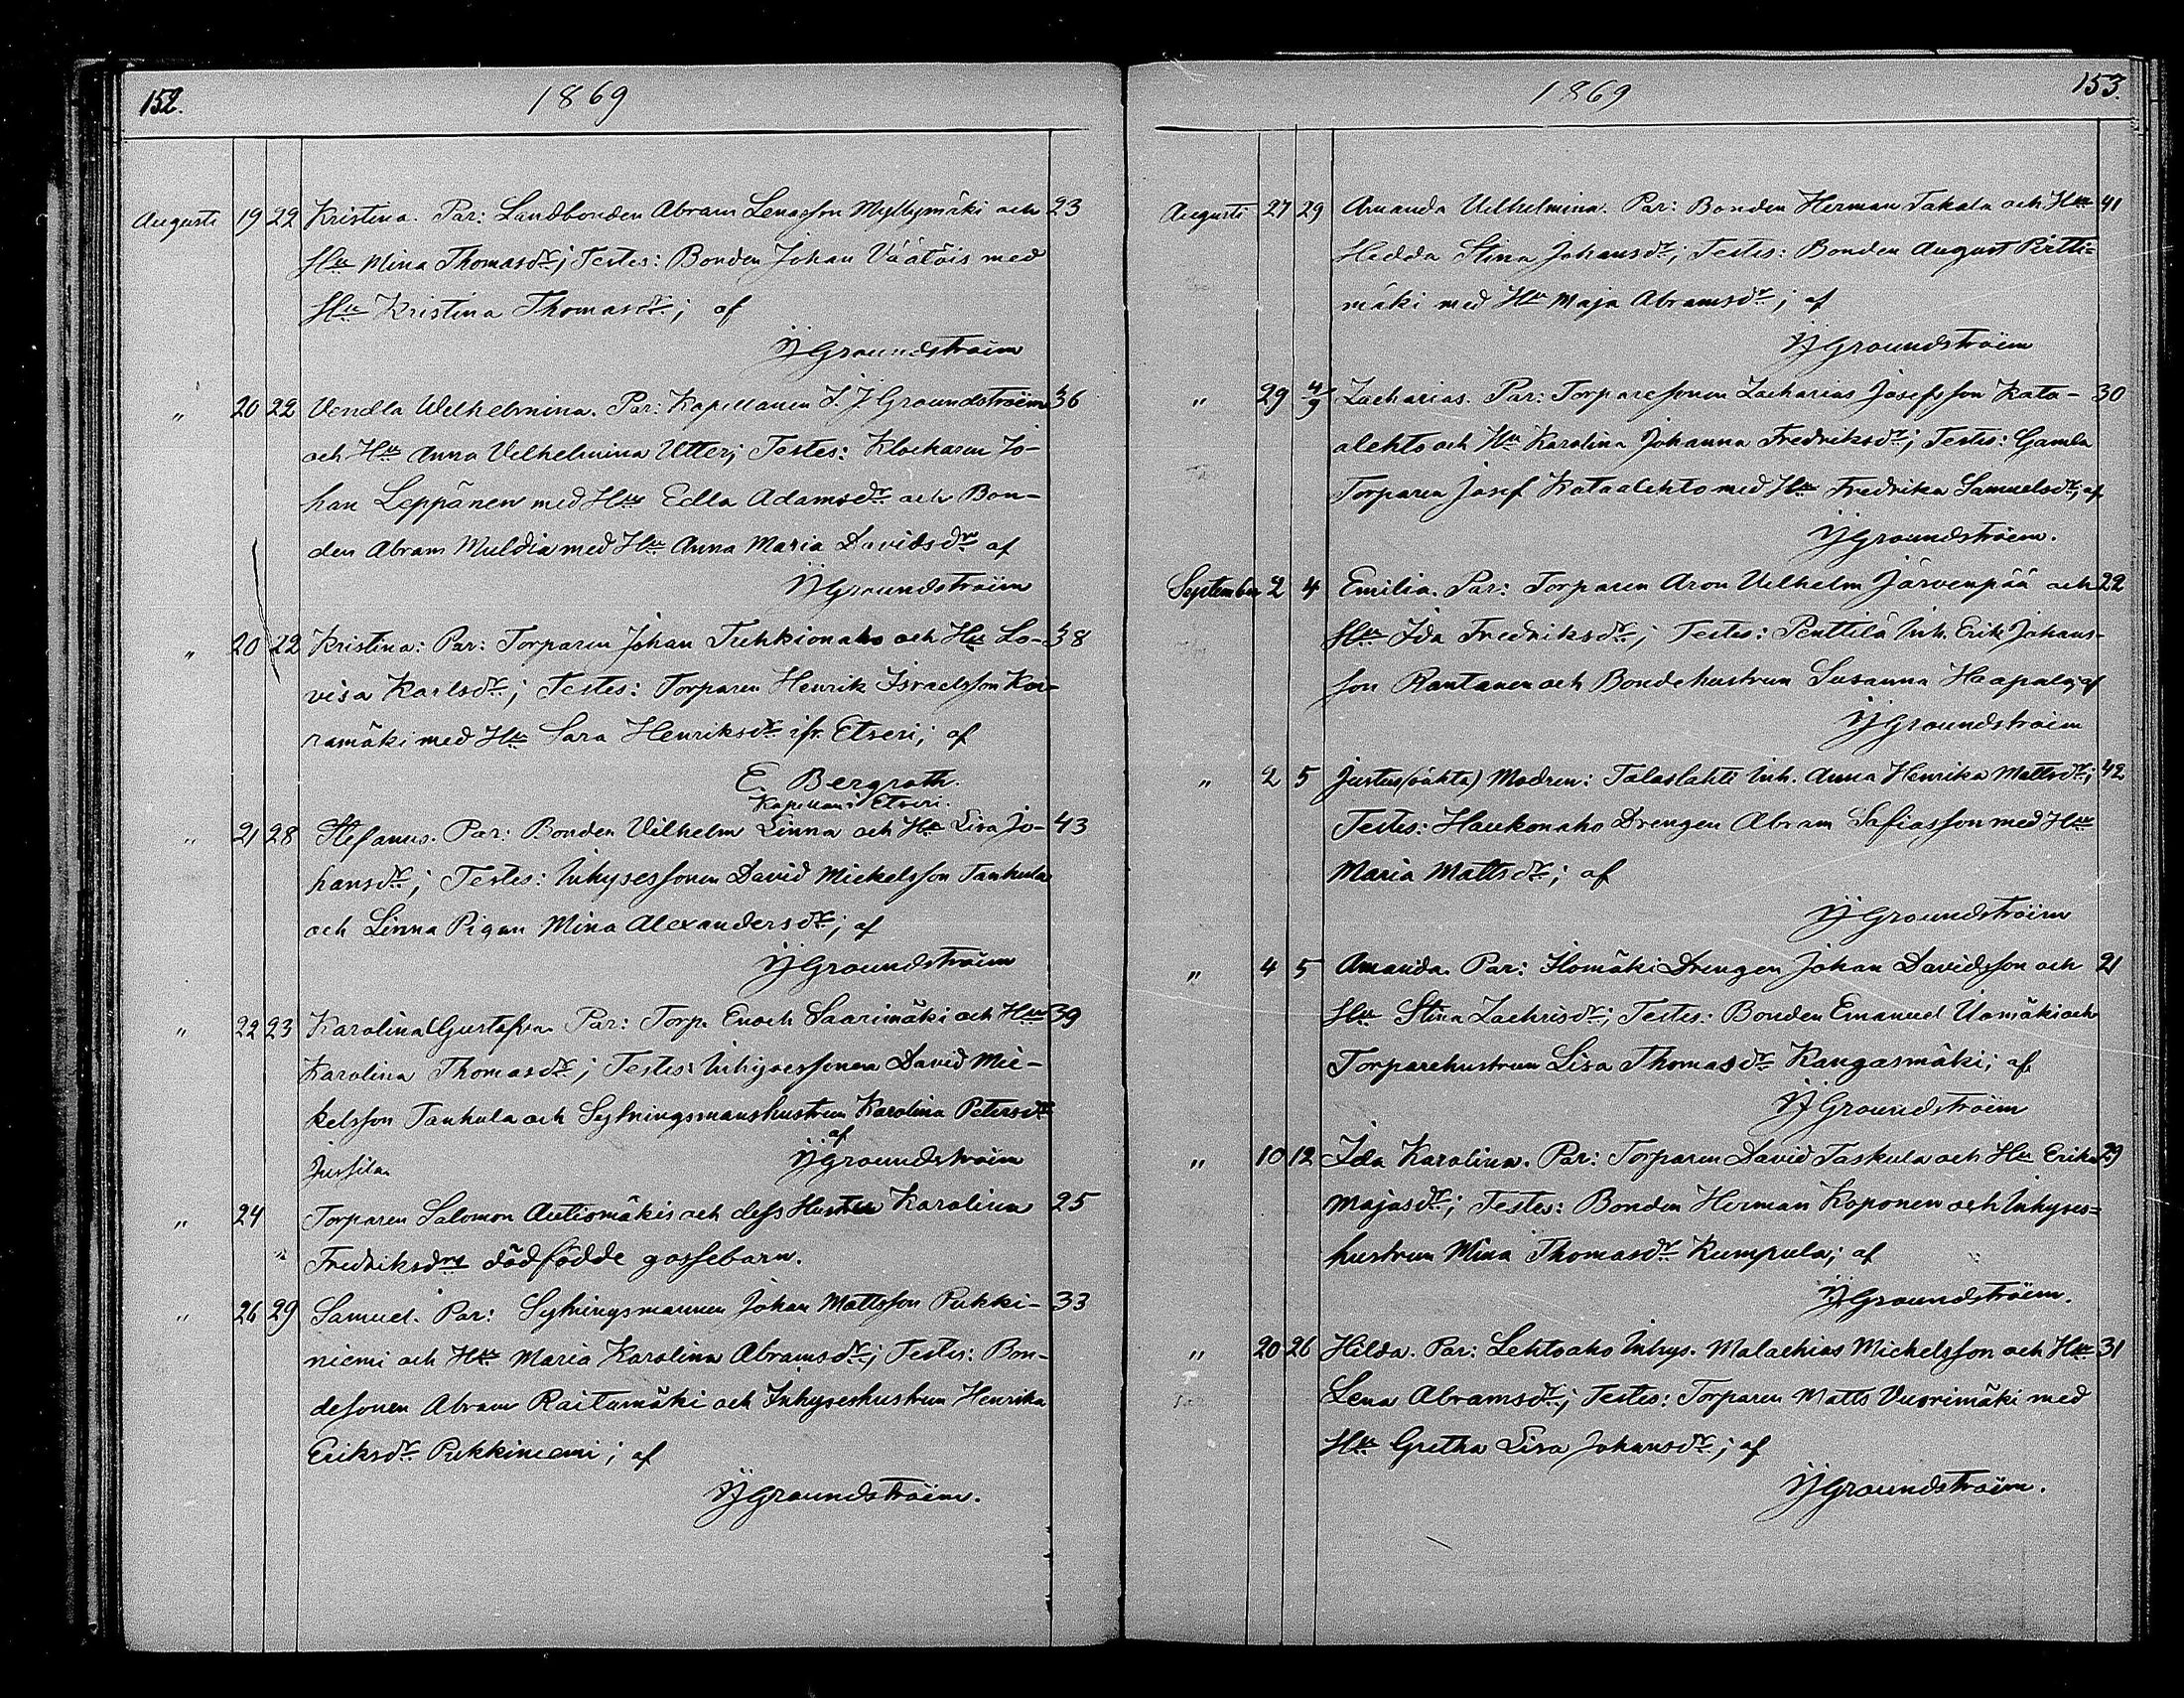 152.
1869
Augusti 19 22 Kristina. Par: Landbonden Abram Lenasson Myllymäki och 23
Hu Mina Thomasdr; Testes: Bonden Johan Väätäis med
Hu Kristina Thomasdr; af
JJGroundstroëm
" 20 22 Vendla Wilhelmina. Par: Kapellanen J. J. Groundstroëm 36
och Hu Anna Vilhelmina Utter; Testes: Klockaren Jo-
han Leppänen med Hu Edla Adamsdr och Bon-
den Abram Muldia med Hu Anna Maria Davidsdr af
JJGroundstroëm
" 20 22 Kristina: Par: Torparen Johan Tuhkionaho och Hu Lo- 38
visa Karlsdr; Testes: Torparen Henrik Israelsson Kor-
ramäki med Hu Sara Henriksdr ifr. Etseri; af
E. Bergroth.
Kapellan i Etseri.
" 21 28 Stefanus. Par: Bonden Vilhelm Linna och Hu Lisa Jo- 43
hansdr; Testes: Inhysessonen David Mickelsson Tanhula
och Linna Pigan Mina Alexandersdr; af
JJGroundstroëm
" 22 23 Karolina Gustafva. Par: Torp. Enoch Saarimäki och Hu 39
Karolina Thomasdr; Testes: Inhysessonen David Mic-
kelsson Tanhula och Sytningsmanshustrun Karolina Petersdr
Jussila af
JJGroundstroëm
" 24 Torparen Salomon Autiomäkis och dess Hustru Karolina 25
" Fredriksdrs dödfödde gossebarn.
" 26 29 Samuel. Par: Sytningsmannen Johan Mattsson Pukki- 33
niemi och Hu Maria Karolina Abramsdr; Testes: Bon-
desonen Abram Raitamäki och Inhyseshustrun Henrika
Eriksdr Pukkiniemi; af
JJGroundstroëm.
1869
153.
Augusti 27 29 Amanda Vilhelmina. Par: Bonden Herman Takala och Hu 41
Hedda Stina Johansdr; Testes: Bonden August Pirtti-
mäki med Hu Maja Abramsdr; af
JJGroundstroëm
" 29 4/9 Zacharias. Par: Torparesonen Zacharias Josefsson Kata- 30
alehto och Hu Karolina Johanna Fredriksdr; Testes: Gamla
Torparen Josef Kataalehto med Hu Fredrika Samuelsdr; af
JJGroundstroëm.
September 2 4 Emilia. Par: Torparen Aron Vilhelm Järvenpää och 22
Hu Ida Fredriksdr; Testes: Penttilä Inh. Erik Johans-
son Rantanen och Bondehustrun Susanna Haapala; af
JJGroundstroëm
" 2 5 Justus (oäkta) Modren: Talaslahti Inh. Anna Henrika Mattsdr; 42
Testes: Haukonaho Drengen Abram Safiasson med Hu
Maria Mattsdr; af
JJGroundstroëm
" 4 5 Amanda. Par: Ilomäki Drengen Johan Davidsson och 21
Hu Stina Zachrisdr; Testes: Bonden Emanuel Uomäki och
Torparehustrun Lisa Thomasdr Kangasmäki; af
JJGroundstroëm
" 10 12 Ida Karolina. Par: Torparen David Taskula och Hu Erika 29
Majasdr; Testes: Bonden Herman Koponen och Inhyses=
hustrun Mina Thomasdr Kumpula; af
JJGroundstroëm.
" 20 26 Hilda. Par: Lehtoaho Inhys. Malachias Michelsson och Hu 31
Lena Abramsdr; Testes: Torparen Matts Vuorimäki med
Hu Gretha Lisa Johansdr; af
JJGroundstroëm.